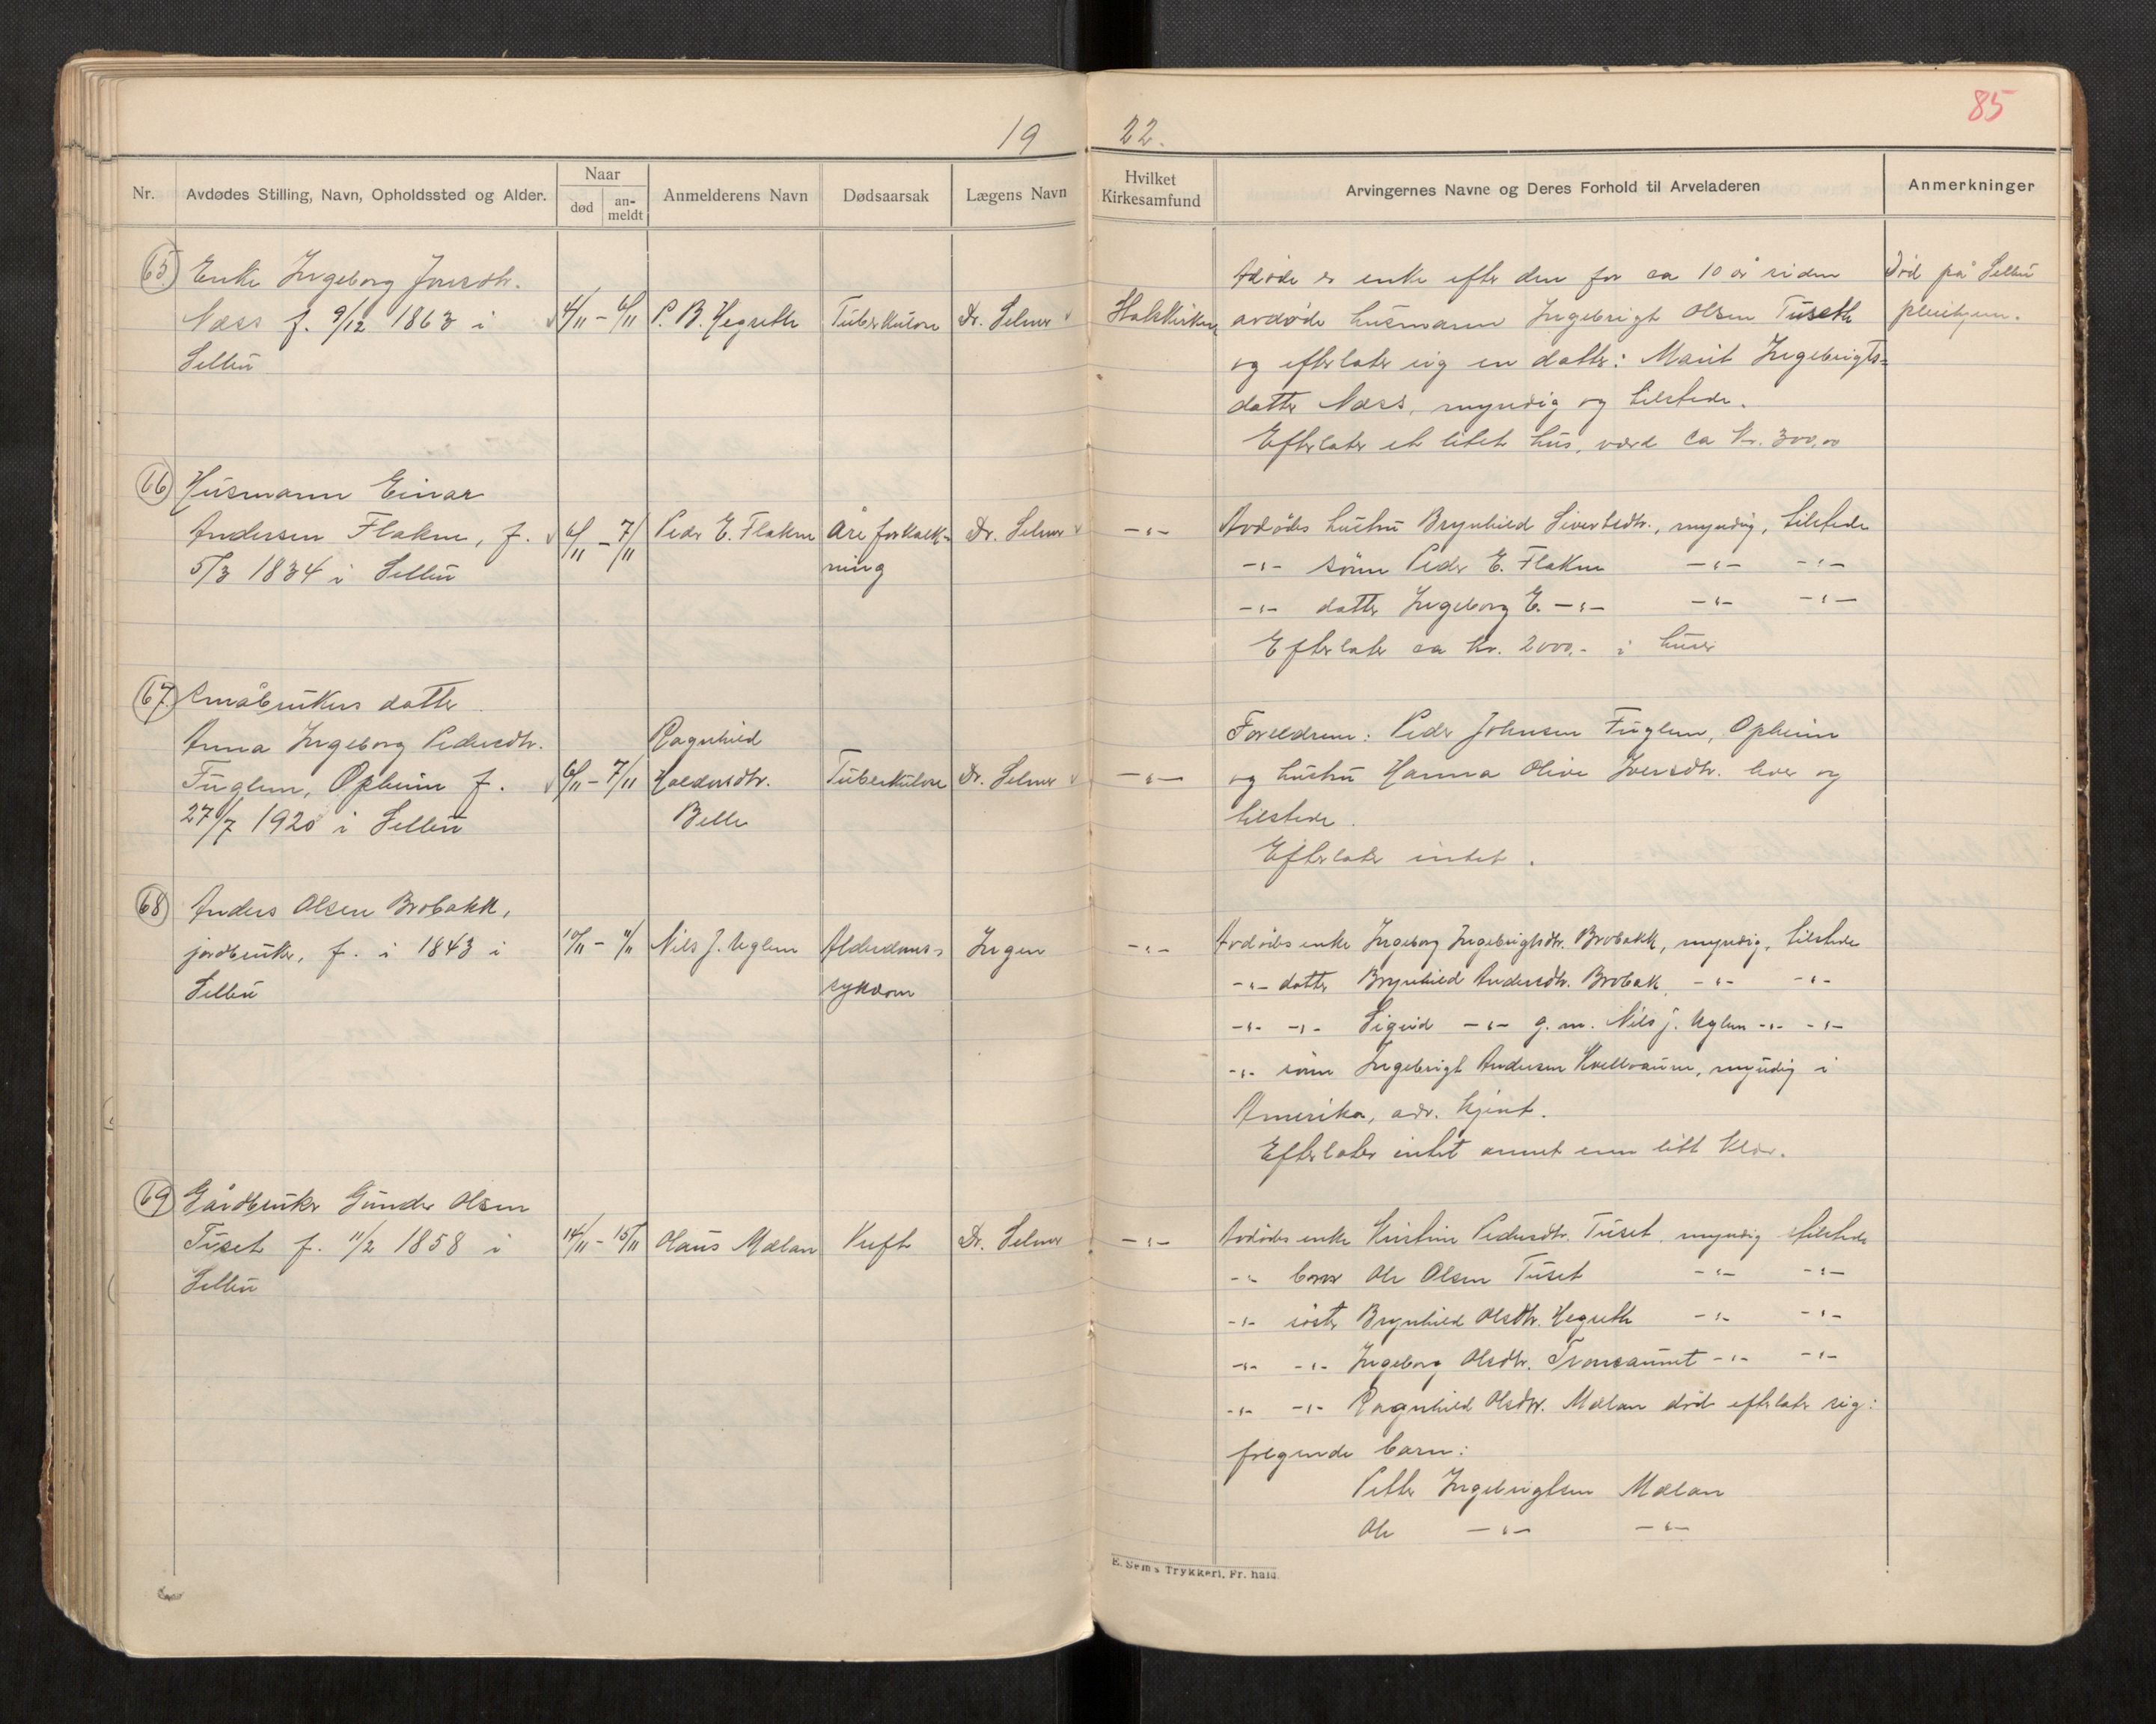 85
19 22.
Nr. Avdødes Stilling, Navn, Opholdssted og Alder. Naar død an-meldt Anmelderens Navn Dødsaarsak Lægens Navn Hvilket Kirkesamfund Arvingernes Navne og Deres Forhold til Arveladeren Anmerkninger
65. Enke Ingeborg Jonsdtr.
Næss f. 9/12 1863 i
Selbu
4/11 - 6/11 P. B. Hegseth Tuberkulose Dr. Selmer
Statskirken
Avdøde er enke efter den for ca 10 år siden
avdøde husmann Ingebrigt Olsen Tuseth
og efterlater sig en datter: Marit Ingebrigts=
datter Næss, myndig og tilstede.
Efterlater et litet hus, verd ca kr. 300,00
Død på Selbu
pleiehjem.
66 Husmann Einar
Andersen Flakne, f.
5/3 1834 i Selbu
6/11 - 7/11 Peder E. Flakne Åreforkalk-
ning
Dr. Selmer
-"-
Avdødes hustru Brynhild Sivertsdtr., myndig, tilstede
-"- sønn Peder E. Flakne -"- -"-
-"- datter Ingeborg E. -"- -"- -"-
Efterlater ca kr. 2000,- i huser
67. Småbrukers datter
Anna Ingeborg Pedersdtr.
Fuglem, Opheim f.
27/7 1920 i Selbu
6/11 - 7/11
Ragnhild
Haldorsdtr.
Belle
Tuberkulose Dr. Selmer
-"-
Foreldrene: Peder Johnsen Fuglem, Opheim
og hustru Hanna Olive Iversdtr. lever og
tilstede.
Efterlater intet.
68 Anders Olsen Brobakk,
jordbruker, f. i 1843 i
Selbu
10/11 - 11/11 Nils J. Uglem Alderdoms-
sykdom
Ingen
-"-
Avdødes enke Ingeborg Ingebrigtsdtr. Brobakk, myndig, tilstede
-"- datter Brynhild Andersdtr. Brobak, -"- -"-
-"- -"- Sigrid -"- g.m. Nils J. Uglem -"- -"-
-"- sønn Ingebrigt Andersen Kvellosaune, myndig i
Amerika, adr. kjent.
Efterlater intet annet enn litt klær.
69 Gårdbruker Gunder Olsen
Tuset f. 11/2 1858 i
Selbu
14/11 - 15/11 Olaus Mælan Kreft Dr. Selmer
-"-
Avdødes enke Kirstine Pedersdtr. Tuset, myndig tilstede
-"- bror Ole Olsen Tuset -"- -"-
-"- søster Brynhild Olsdtr. Hegseth -"- -"-
-"- -"- Ingeborg Olsdtr. Tronsaunet -"- -"-
-"- -"- Ragnhild Olsdtr. Mælan død efterlater sig:
følgende barn:
Petter Ingebrigtsen Mælan
Ole -"- -"-
E. Sem's Trykkeri, Fr. hald.